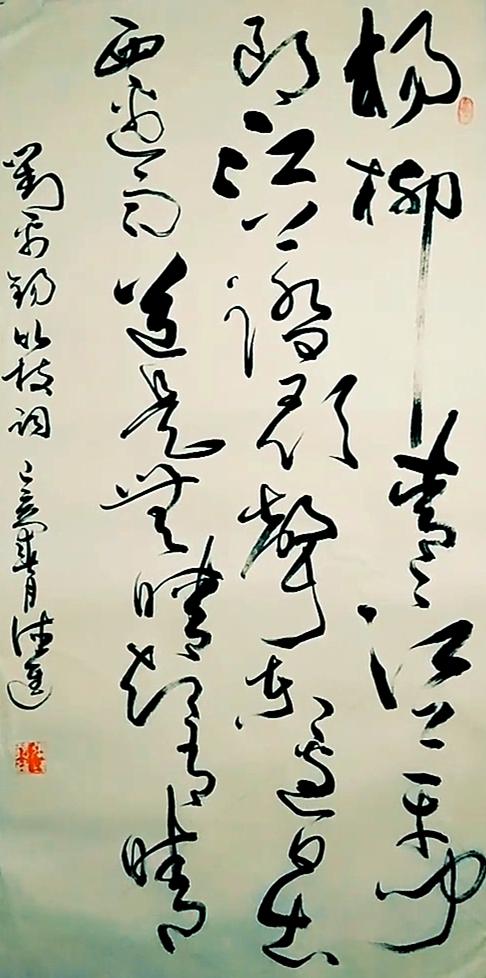 楊柳青々江水平聞
郎江上踏歌聲東邊日出
西邊雨道是無晴卻有晴
劉禹錫竹枝詞 己亥春月